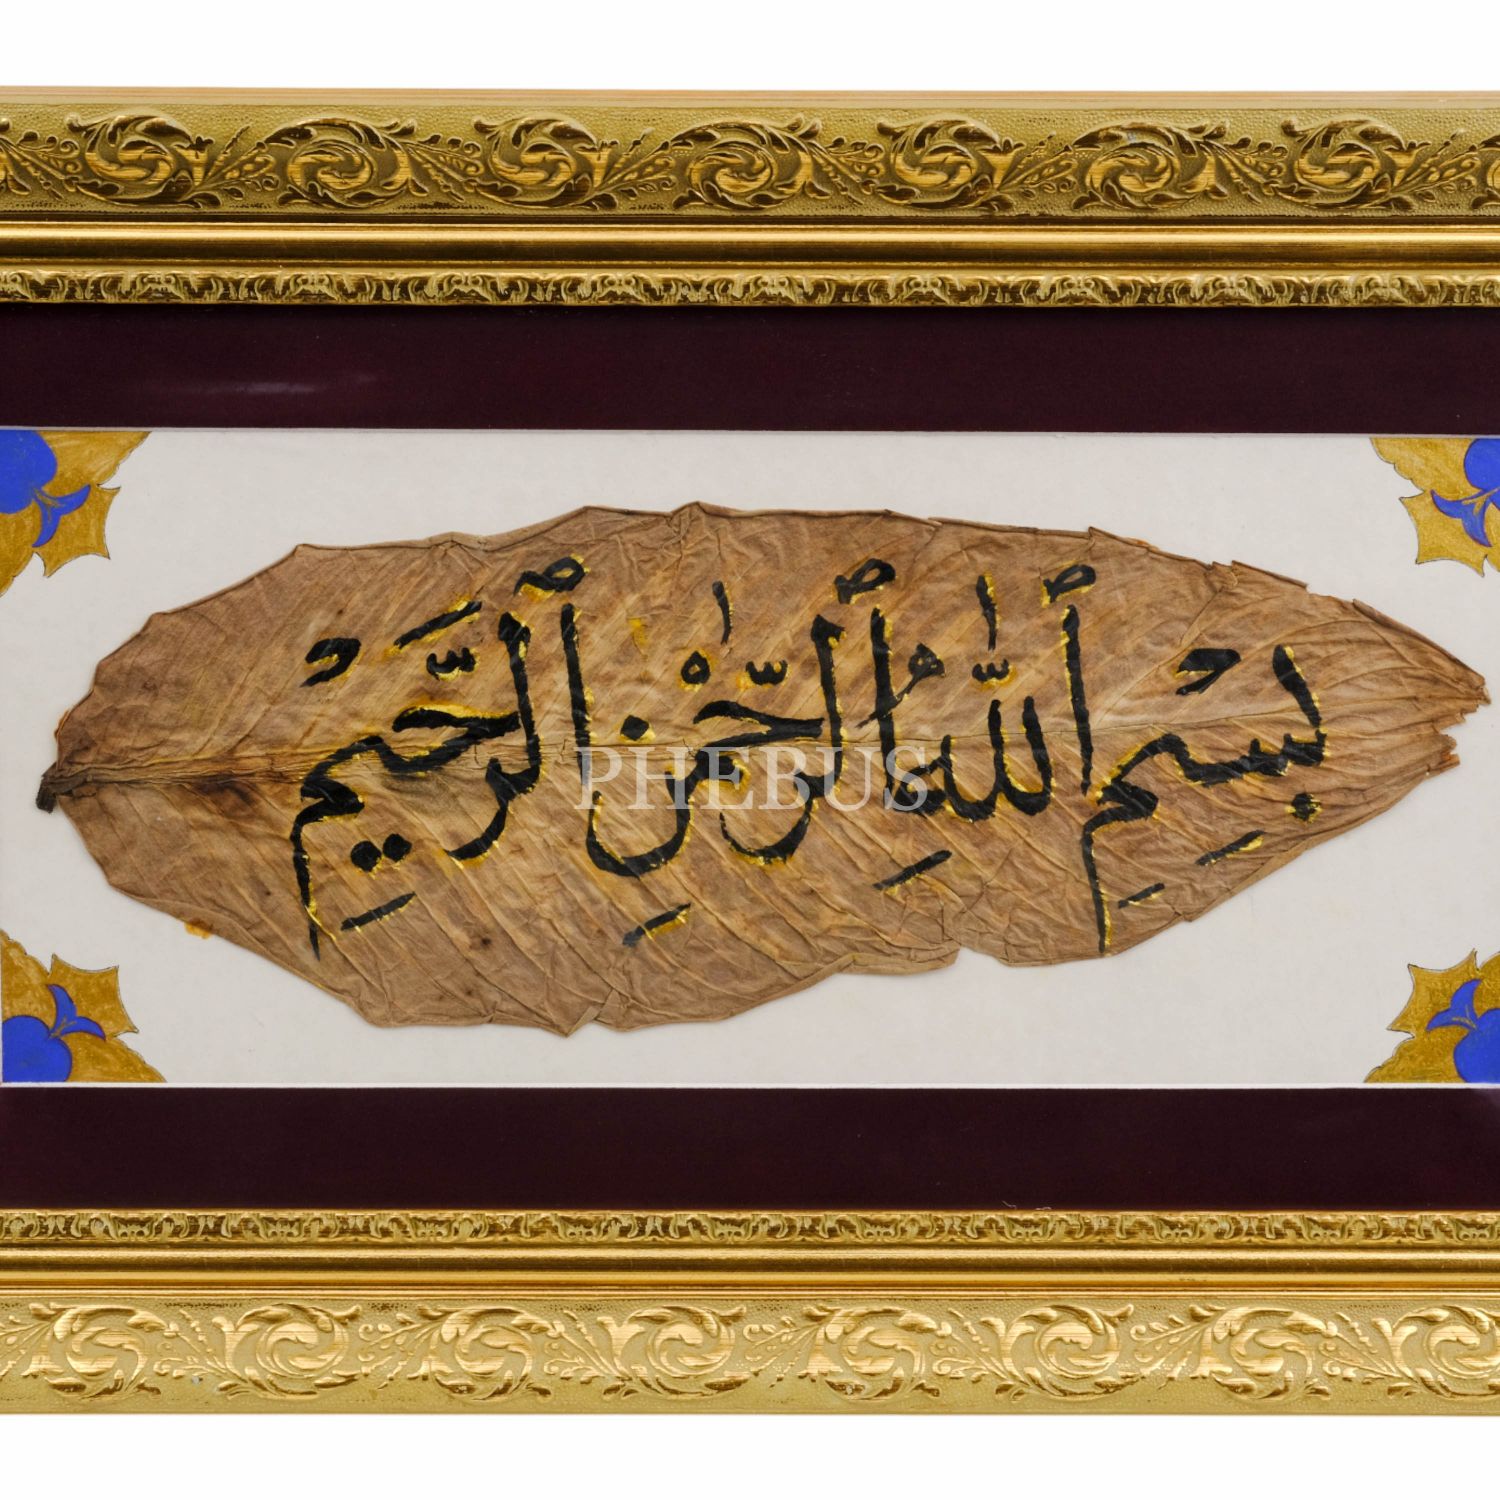 بِسْمِ ٱللَّٰهِ ٱلرَّحْمَٰنِ ٱلرَّحِيمِ
PHEBUS